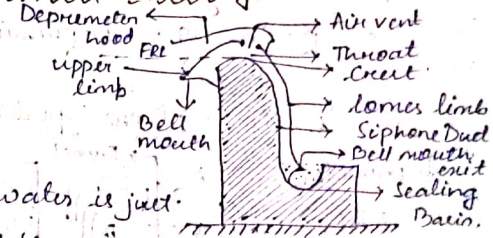 Depremeter
hood
FRL
upper
limb
Bell
mouth
Air vent
Throat
Crest
lower limb
Siphone Duct
Bell mouth
exit
Sealing
Basin.
water is just.